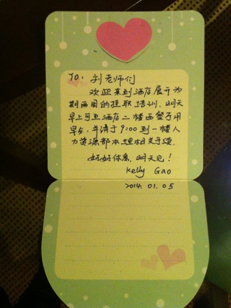 TO: 刘老师们
欢迎来到酒店展开为
期两周的挂职培训,明天
早上可在酒店二楼西餐厅用
早餐,并请于9:00到一楼人
力资源部办理相关手续。
好好休息,明天见!
Kelly Gao
2014. 01. 05